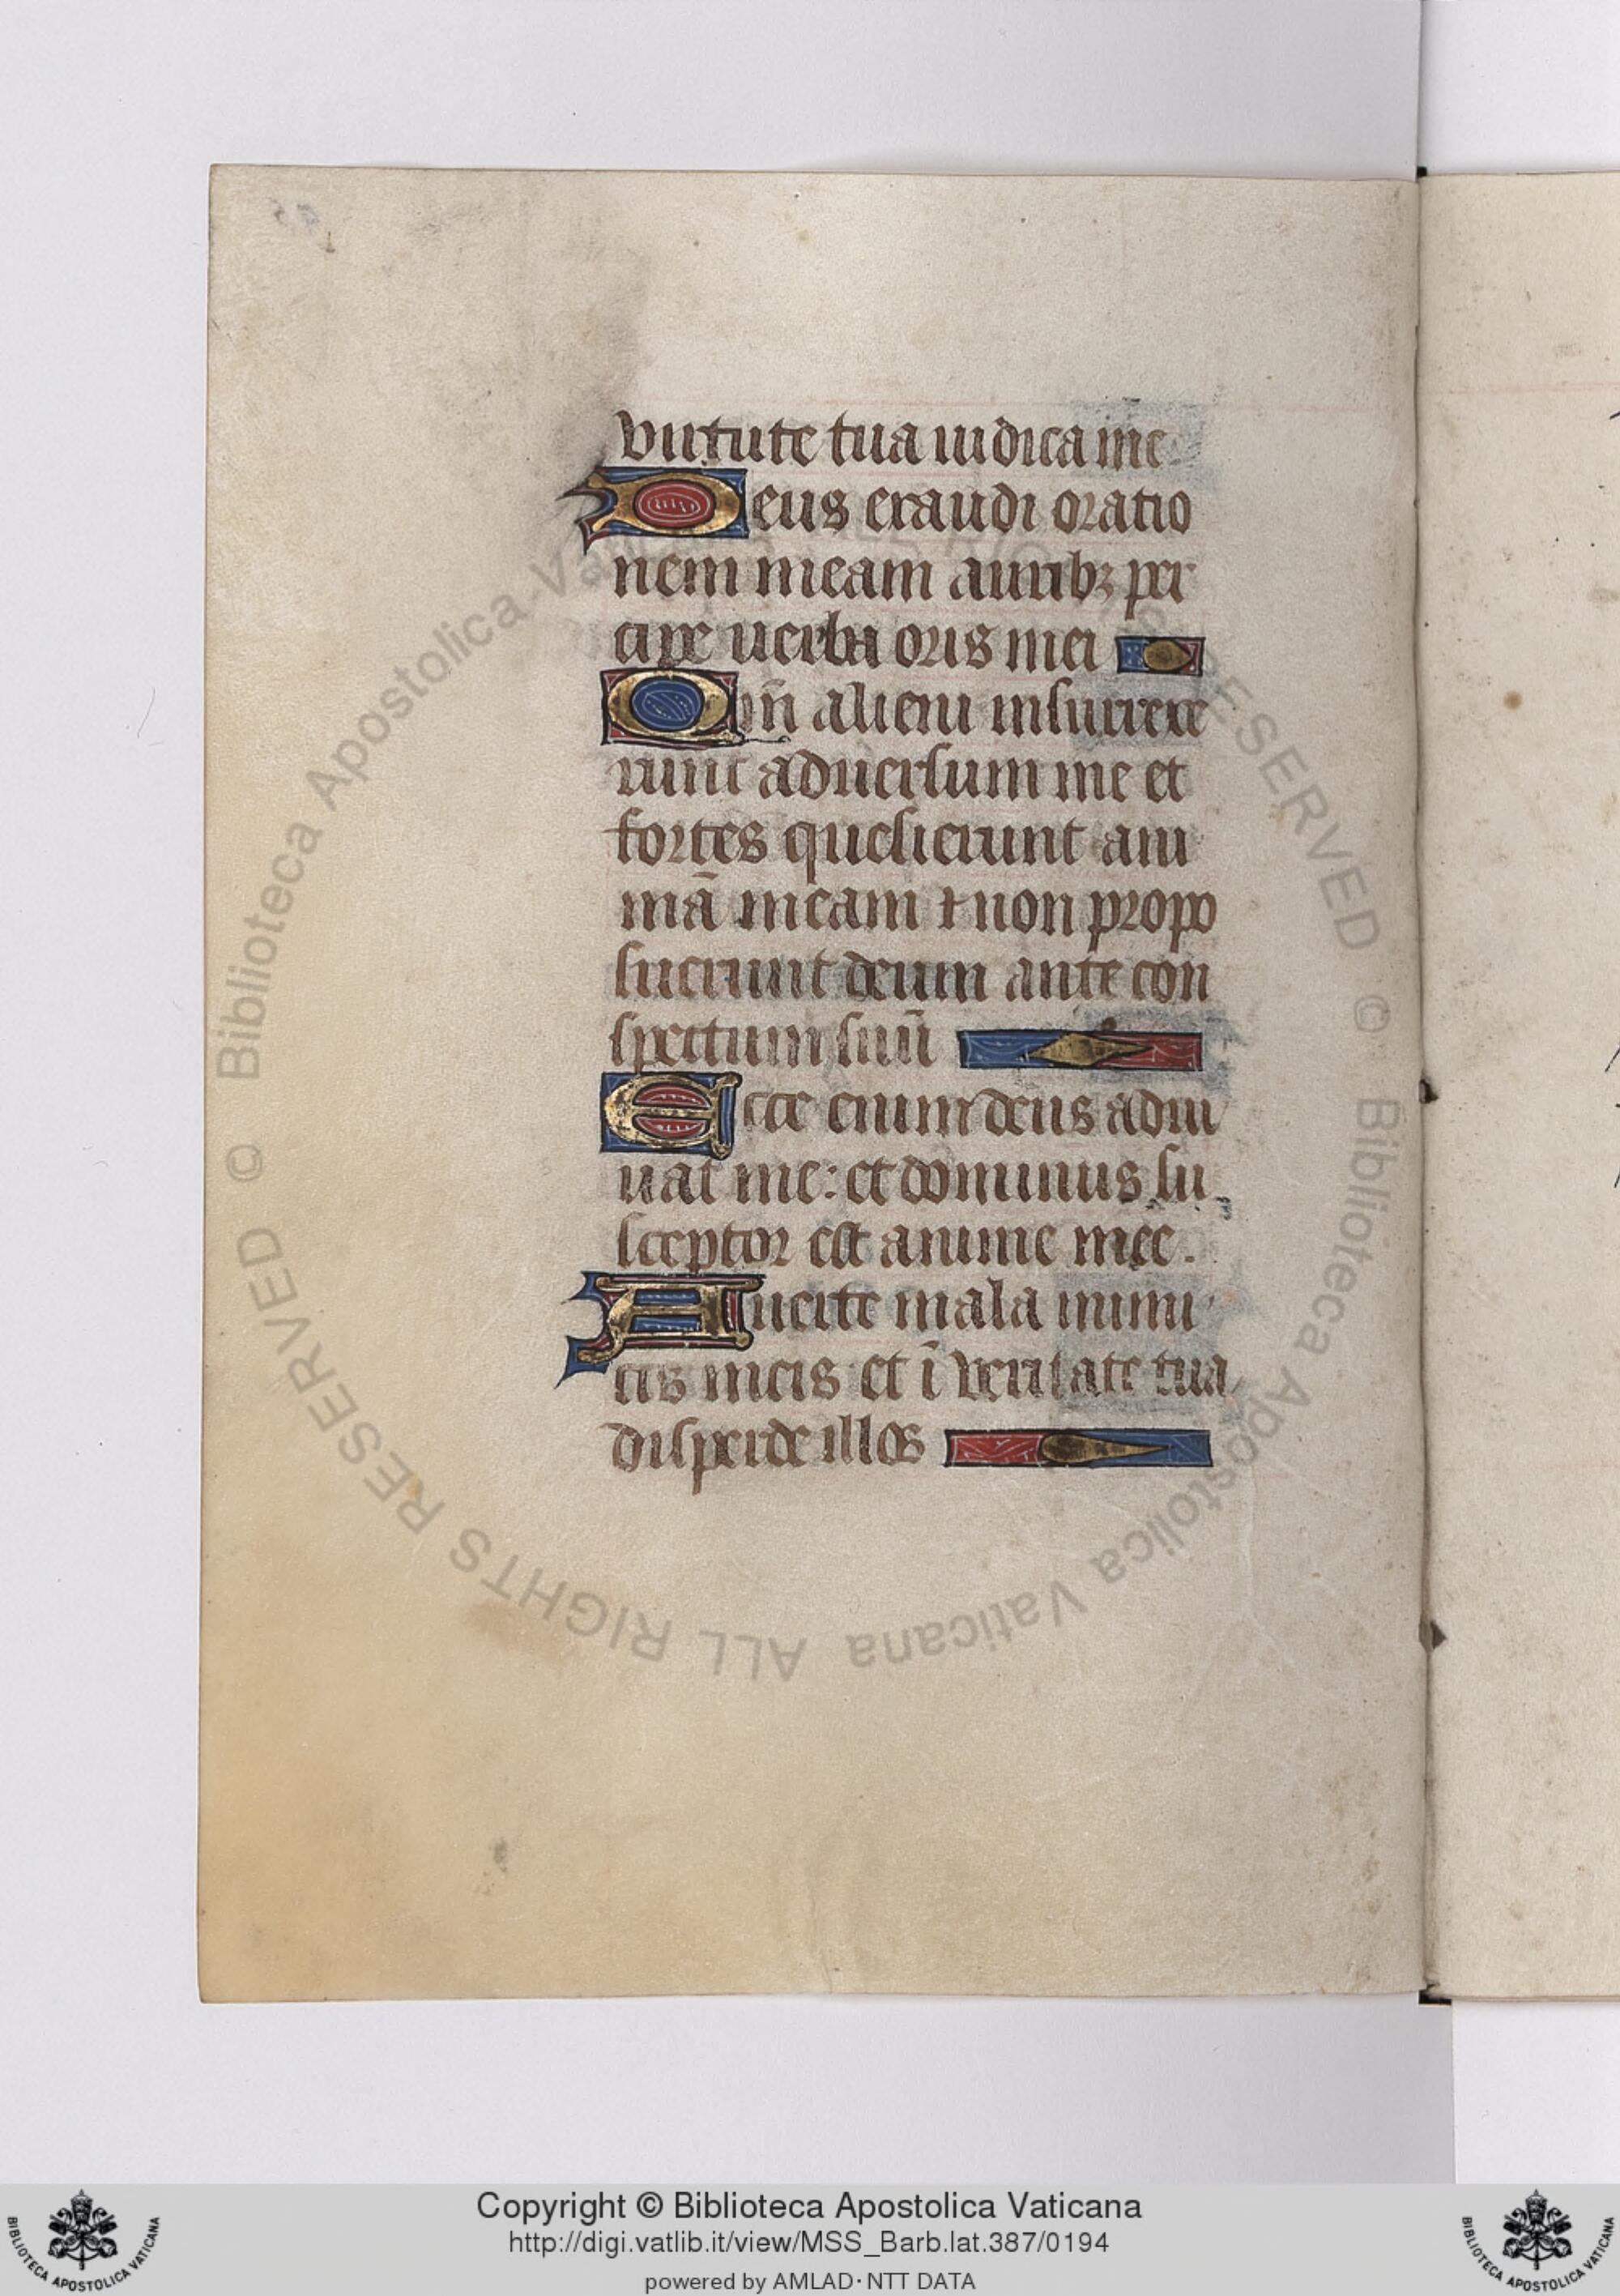 virtute tua iudica me
Deus exaudi oratio
nem meam auribꝫ per
cipe uerba oris mei
Qm̄ alieni insurrexe
runt aduersum me et
fortes quesierunt ani
mā meam ⁊ non propo
suerunt deum ante con
spectum suū
Ecce enim deus adiu
uat me: et dominus su
sceptor est anime mee.
Auerte mala inimi
cis meis et ī veritate tua
disperde illos
© Biblioteca Apostolica Vaticana ALL RIGHTS RESERVED
© Biblioteca Apostolica Vaticana ALL RIGHTS RESERVED
Copyright © Biblioteca Apostolica Vaticana
http://digi.vatlib.it/view/MSS_Barb.lat.387/0194
powered by AMLAD·NTT DATA
BIBLIOTECA APOSTOLICA VATICANA
BIBLIOTECA APOSTOLICA VATICANA